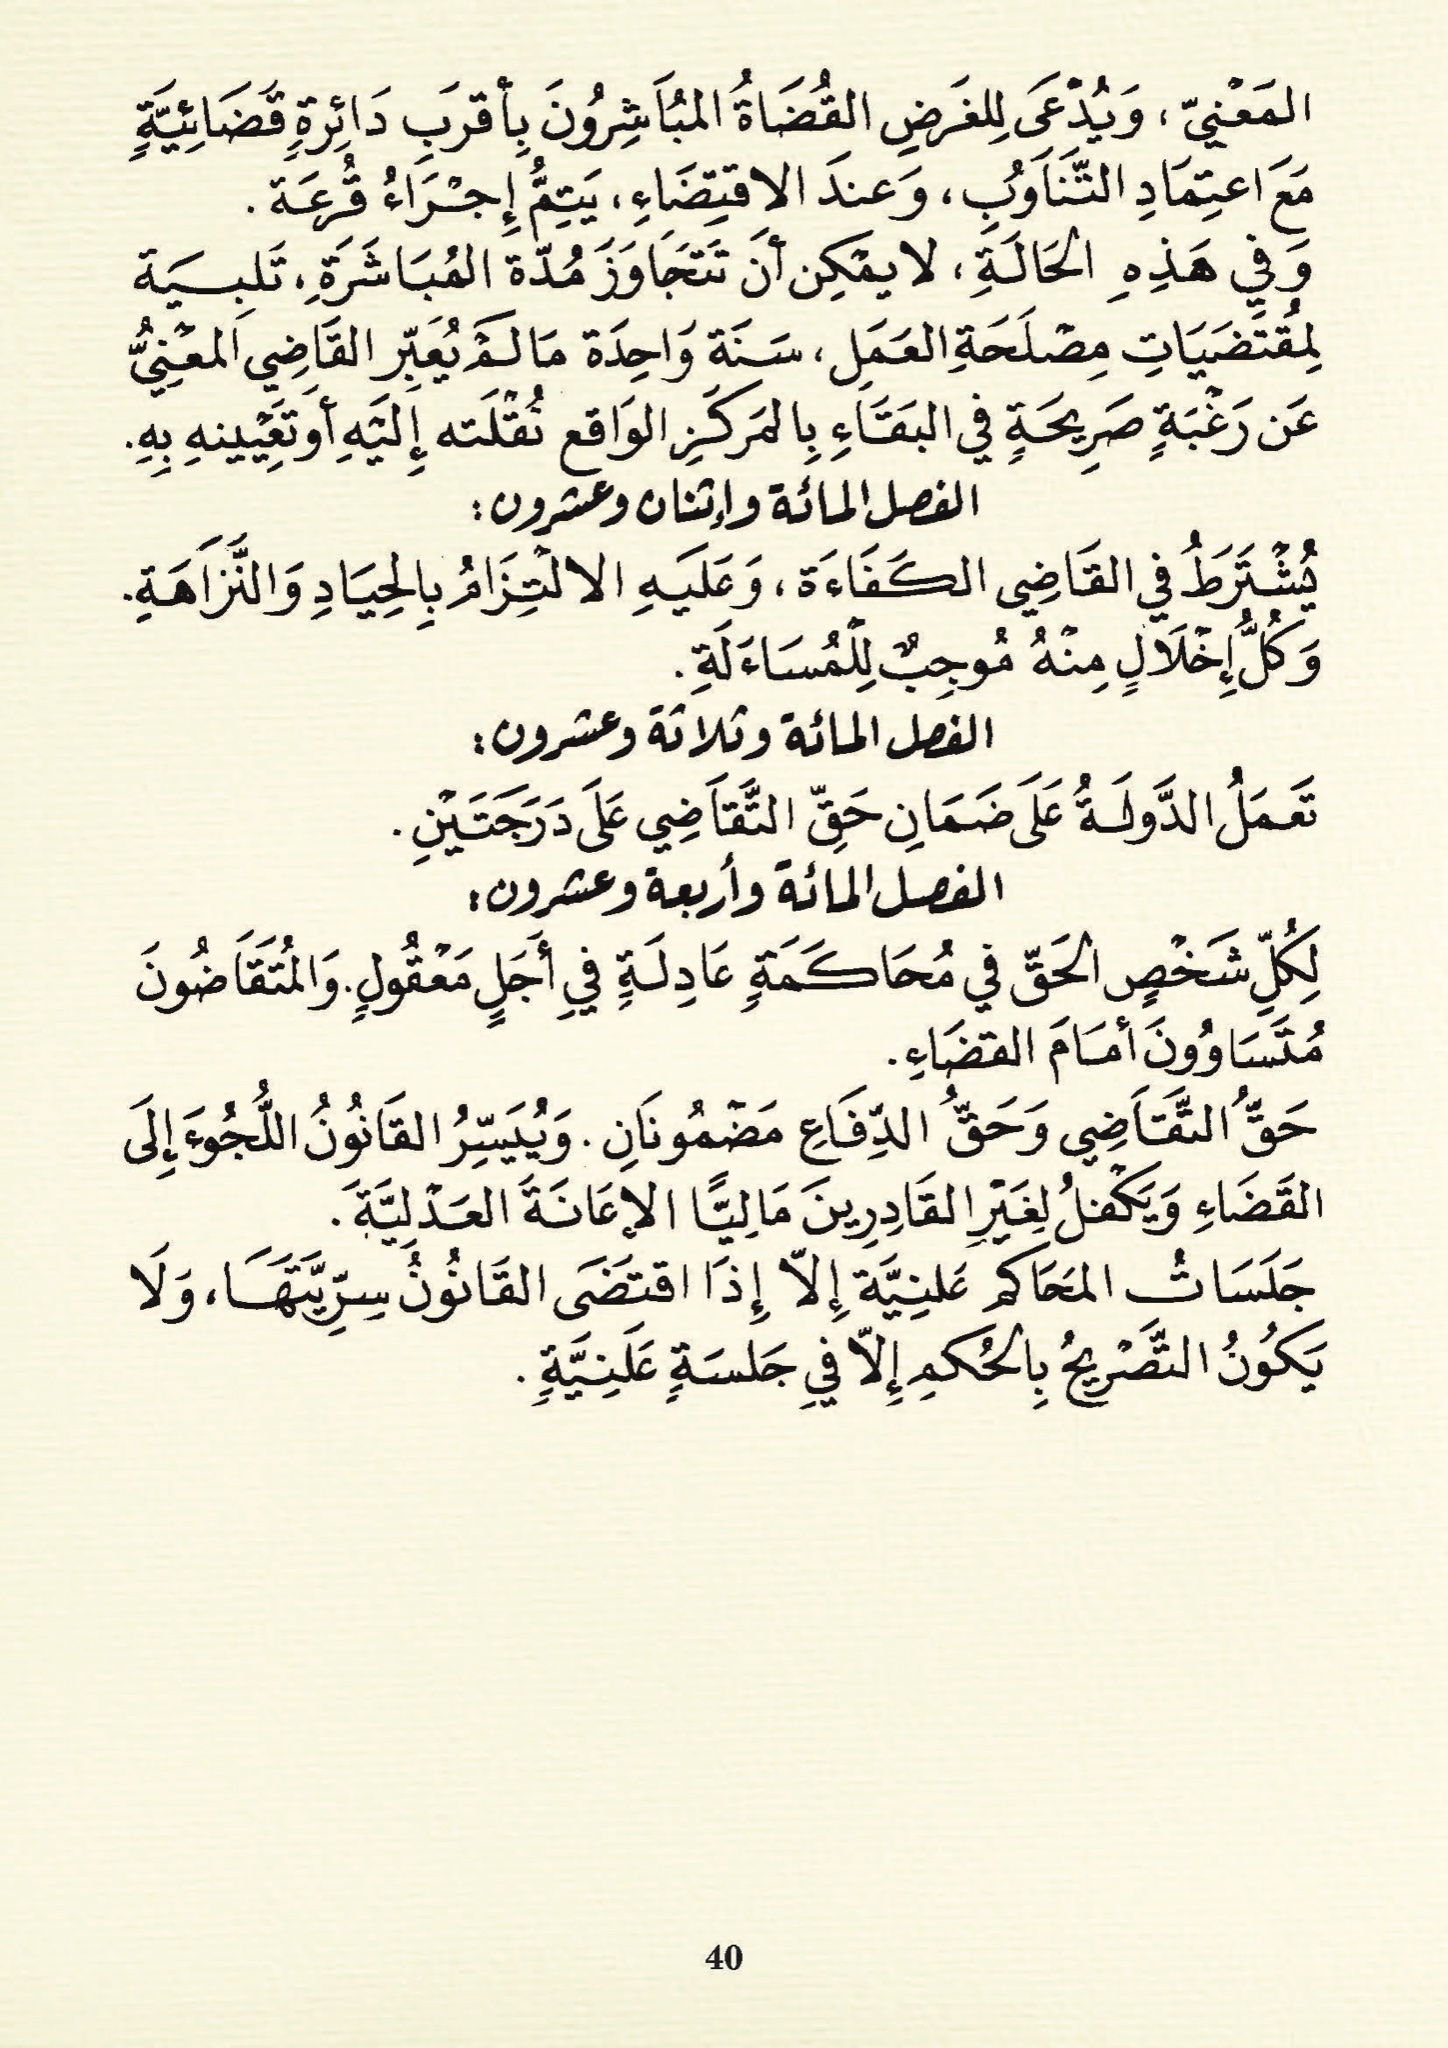 المَعْنِيّ، وَيُدْعَى لِلغَرَضِ القُضَاةُ المُبَاشِرُونَ بِأقرَبِ دَائِرَةٍ قَضَائِيَّةٍ
مَعَ اعتِمَادِ التَّنَاوُبِ، وَعندَ الاقتِضَاءِ، يَتِمُّ إِجْرَاءُ قُرعَة.
وَفِي هَذِهِ الحَالَةِ، لا يمْكِن أنَ تَتَجَاوَزَ مُدّة المُبَاشَرَةِ، تَلبِيَة
لِمُقتَضَيَاتِ مِصْلَحَةِ العَمَلِ، سَنَة وَاحِدَة مَا لَمْ يُعَبِّر القَاضِي المعْنِيُّ
عَن رَغْبَةٍ صَرِيحَةٍ في البَقَاءِ بِالمَركَزِ الوَاقع نُقْلَته إِليَهِ أو تَعْيِينهِ بِهِ.
الفصل المائة وإثنان وعشرون:
يُشْتَرَطُ في القَاضِي الكَفَاءَة، وَعَلَيهِ الالْتِزَامُ بِالحِيَادِ وَالنَّزَاهَةِ.
وَكُلُّ إِخْلَالٍ مِنْهُ مُوجِبٌ لِلْمُسَاءَلَةِ.
الفصل المائة وثلاثة وعشرون:
تَعمَلُ الدَّولَةُ عَلَى ضَمَانِ حَقِّ التَّقَاضِي عَلَى دَرَجَتَيْنِ.
الفصل المائة وأربعة وعشرون:
لِكُلِّ شَخْصٍ الحَقّ في مُحَاكَمَةٍ عَادِلَةٍ فيِ أَجَلٍ مَعْقُولٍ. وَالمُتَقَاضُونَ
مُتَسَاوُونَ أمَامَ القضَاءِ.
حَقُّ التَّقَاضِي وَحَقُّ الدِّفَاعِ مَضْمُونَانِ. وَيُيَسِّرُ القَانُونُ اللُّجُوءَ إِلَى
القَضَاءِ وَيَكْفلُ لِغَيْرِ القَادِرِينَ مَالِيًّا الإعَانَةَ العَدْلِيَّةَ.
جَلَسَاتُ المَحَاكم عَلنِيَّة إِلاّ إِذَا اقتَضَى القَانُونُ سِرِّيَّتَهَا، وَلَا
يَكُونُ التَّصْرِيحُ بِالحُكمِ إِلاّ فيِ جَلسَةٍ عَلَنِيَّةٍ.
40